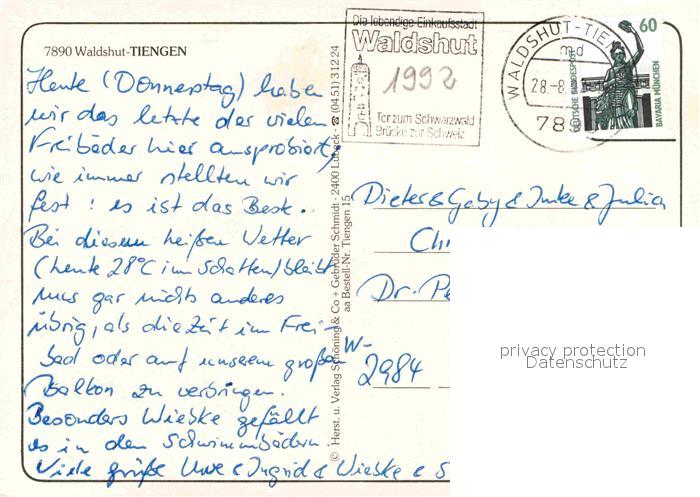 7890 Waldshut-TIENGEN
Heute (Donnerstag) haben
wir das letzte der vielen
Freibäder hier ausprobiert,
wie immer stellten wir
fest: es ist das Beste.
Bei diesem heißen Wetter
(heute 28°C im Schatten) bleibt
uns gar nichts anderes
übrig, als die Zeit im Frei-
bad oder auf unserem großen
Balkon zu verbringen.
Besonders Wiebke gefällt
es in den Schwimmbädern.
Viele Grüße Uwe & Ingrid & Wiebke & S
© Herst. u. Verlag Schöning & Co + Gebrüder Schmidt · 2400 Lübeck · ☎ (04 51) 3 12 24
aa Bestell-Nr. Tiengen 15
Die lebendige Einkaufsstadt
Waldshut
1992
Tor zum Schwarzwald
Brücke zur Schweiz
WALDSHUT-TIE
md
28.-8.
78
60
DEUTSCHE BUNDESPOST
BAVARIA MÜNCHEN
Dieter & Gaby & Imke & Julia
Ch
Dr. Pe
W-
2984
privacy protection
Datenschutz